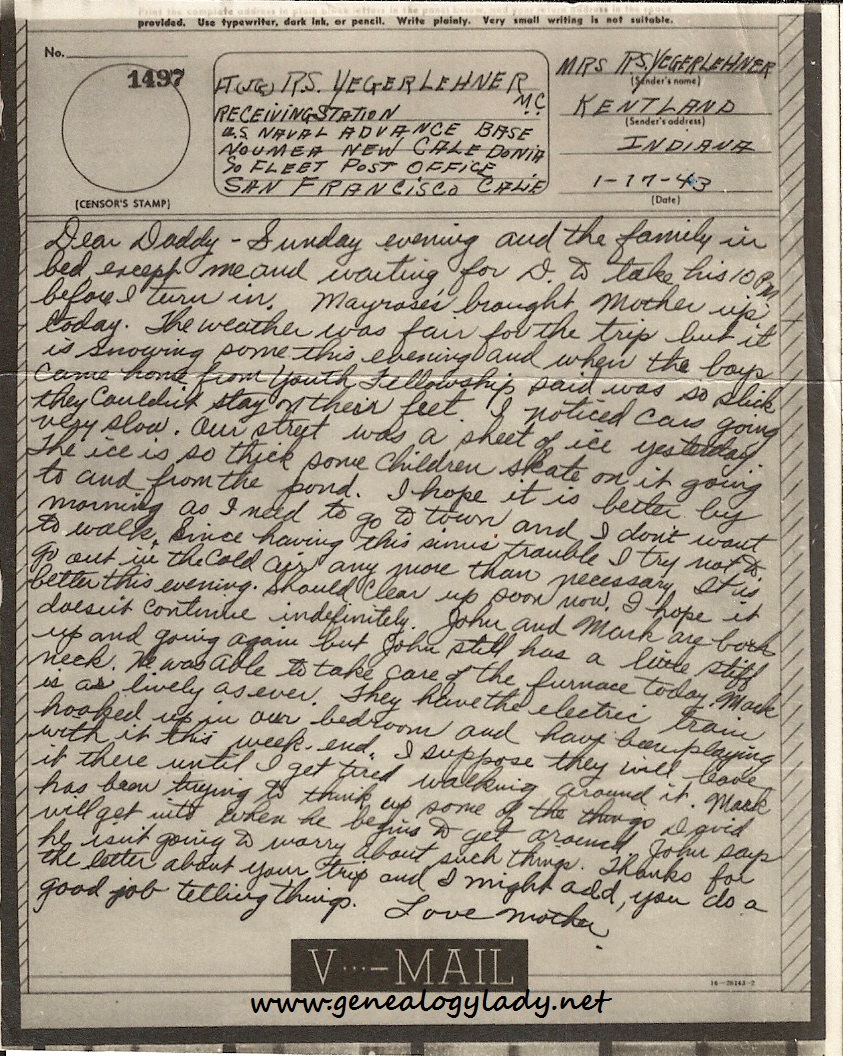 Print the complete address in plain block letters in the panel below, and your return address in the space
provided. Use typewriter, dark ink, or pencil. Write plainly. Very small writing is not suitable.
No.
1497
(CENSOR'S STAMP)
LT (JG) R.S. YEGERLEHNER
M.C
RECEIVING STATION
U.S NAVAL ADVANCE BASE
NOUMEA NEW CALEDONIA
% FLEET POST OFFICE
SAN FRANCISCO CALIF
MRS R.S. YEGERLEHNER
(Sender's name)
KENTLAND
(Sender's address)
INDIANA
1-17-43
(Date)
Dear Daddy - Sunday evening and the family in
bed except me and waiting for D. to take his 10 PM
before I turn in. Mayroses brought Mother up
today. The weather was fair for the trip but it
is snowing some this evening and when the boys
came home from Youth Fellowship said was so slick
they couldn't stay on their feet. I noticed cars going
very slow. Our street was a sheet of ice yesterday.
The ice is so thick some children skate on it going
to and from the pond. I hope it is better by
morning as I need to go to town and I don't want
to walk. Since having this sinus trouble I try not to
go out in the cold air any more than necessary. It is
better this evening. Should clear up soon now. I hope it
doesn't continue indefinitely. John and Mark are both
up and going again but John still has a little stiff
neck. He was able to take care of the furnace today. Mark
is as lively as ever. They have the electric train
hooked up in our bedroom and have been playing
with it this week-end. I suppose they will leave
it there until I get tired walking around it. Mark
has been trying to think up some of the things David
will get into when he begins to get around. John says
he isn't going to worry about such things. Thanks for
the letter about your trip and I might add, you do a
good job telling things. Love Mother
V···—MAIL
16-28143-2
www.genealogylady.net